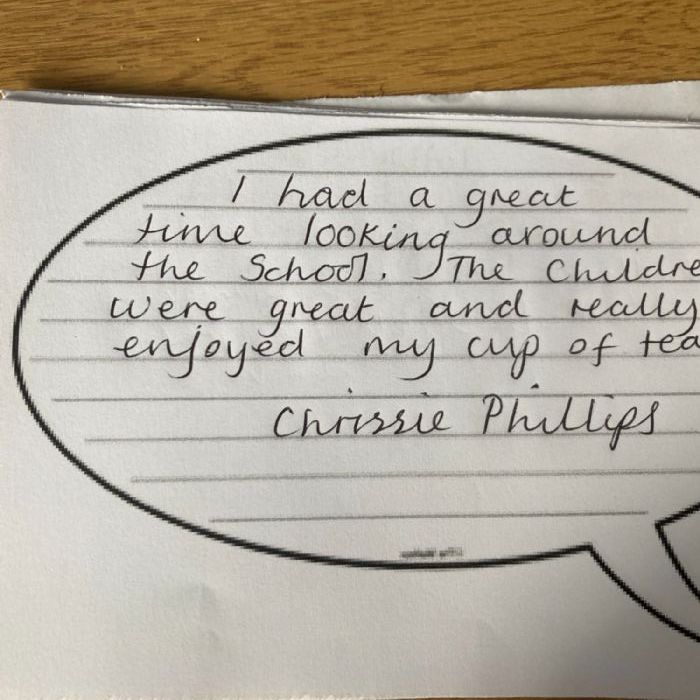 I had a great
time looking around
the School. The Childre
were great and really
enjoyed my cup of tea
Chrissie Phillips